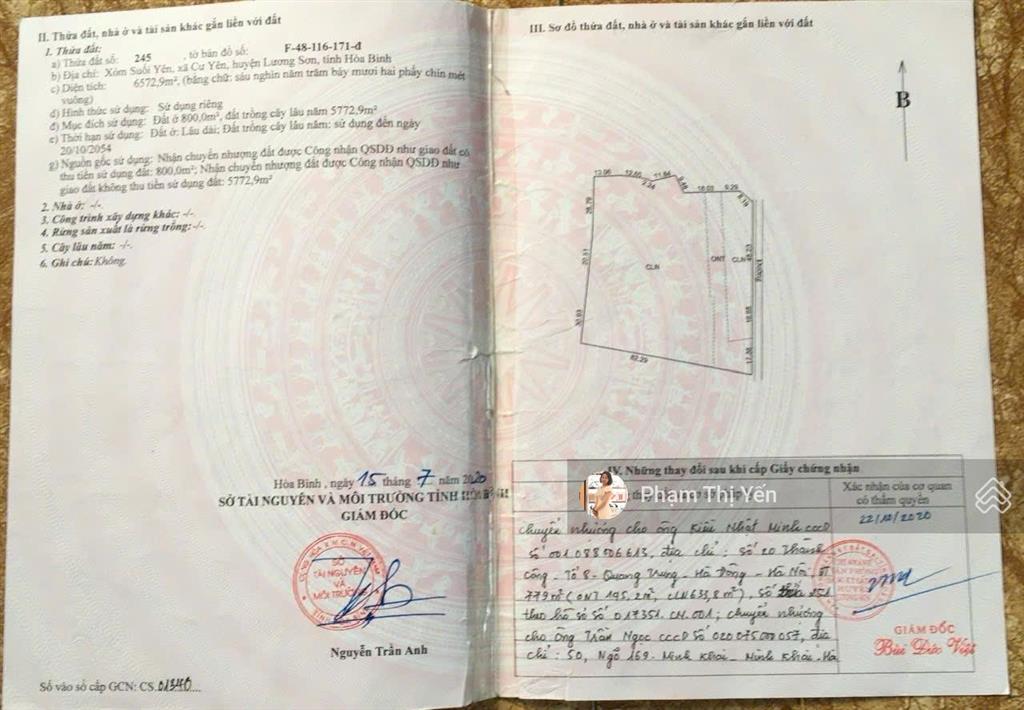 II. Thửa đất, nhà ở và tài sản khác gắn liền với đất
1. Thửa đất:
a) Thửa đất số: 245 , tờ bản đồ số: F-48-116-171-đ
b) Địa chỉ: Xóm Suối Yên, xã Cư Yên, huyện Lương Sơn, tỉnh Hòa Bình
c) Diện tích: 6572,9m², (bằng chữ: sáu nghìn năm trăm bảy mươi hai phẩy chín mét
vuông)
d) Hình thức sử dụng: Sử dụng riêng
đ) Mục đích sử dụng: Đất ở 800,0m², đất trồng cây lâu năm 5772,9m²
e) Thời hạn sử dụng: Đất ở: Lâu dài; Đất trồng cây lâu năm: sử dụng đến ngày
20/10/2054
g) Nguồn gốc sử dụng: Nhận chuyển nhượng đất được Công nhận QSDĐ như giao đất có
thu tiền sử dụng đất: 800,0m²; Nhận chuyển nhượng đất được Công nhận QSDĐ như
giao đất không thu tiền sử dụng đất: 5772,9m²
2. Nhà ở: -/-.
3. Công trình xây dựng khác: -/-.
4. Rừng sản xuất là rừng trồng: -/-.
5. Cây lâu năm: -/-.
6. Ghi chú: Không.
Hòa Bình , ngày 15 tháng 7 năm 2020
SỞ TÀI NGUYÊN VÀ MÔI TRƯỜNG TỈNH HÒA BÌNH
GIÁM ĐỐC
SỞ
TÀI NGUYÊN
VÀ
MÔI TRƯỜNG
Nguyễn Trần Anh
Số vào sổ cấp GCN: CS.01340...
III. Sơ đồ thửa đất, nhà ở và tài sản khác gắn liền với đất
B
13.96 7.24 11.84 9.48 18.03 9.29 8.19
28.79
20.51
30.93
CLN
ONT
CLN
48.23
18.88
17.38
82.29
IV. Những thay đổi sau khi cấp Giấy chứng nhận
Phạm Thị Yến
Xác nhận của cơ quan
có thẩm quyền
22/12/2020
Chuyển nhượng cho ông Kiều Nhật Minh CCCD
Số 001088506613, địa chỉ : Số 20 Thành
Công - Tổ 8 - Quang Trung - Hà Đông - Hà Nội, DT
779m² (ONT 145,2m², CLN 633,8m²), số thửa 251
theo hồ sơ số 017351.CN.001; chuyển nhượng
cho ông Trần Ngọc CCCD Số 020075000057, địa
chỉ : 50, Ngõ 169 - Minh Khai - Minh Khai - Hà
GIÁM ĐỐC
Bùi Đức Việt